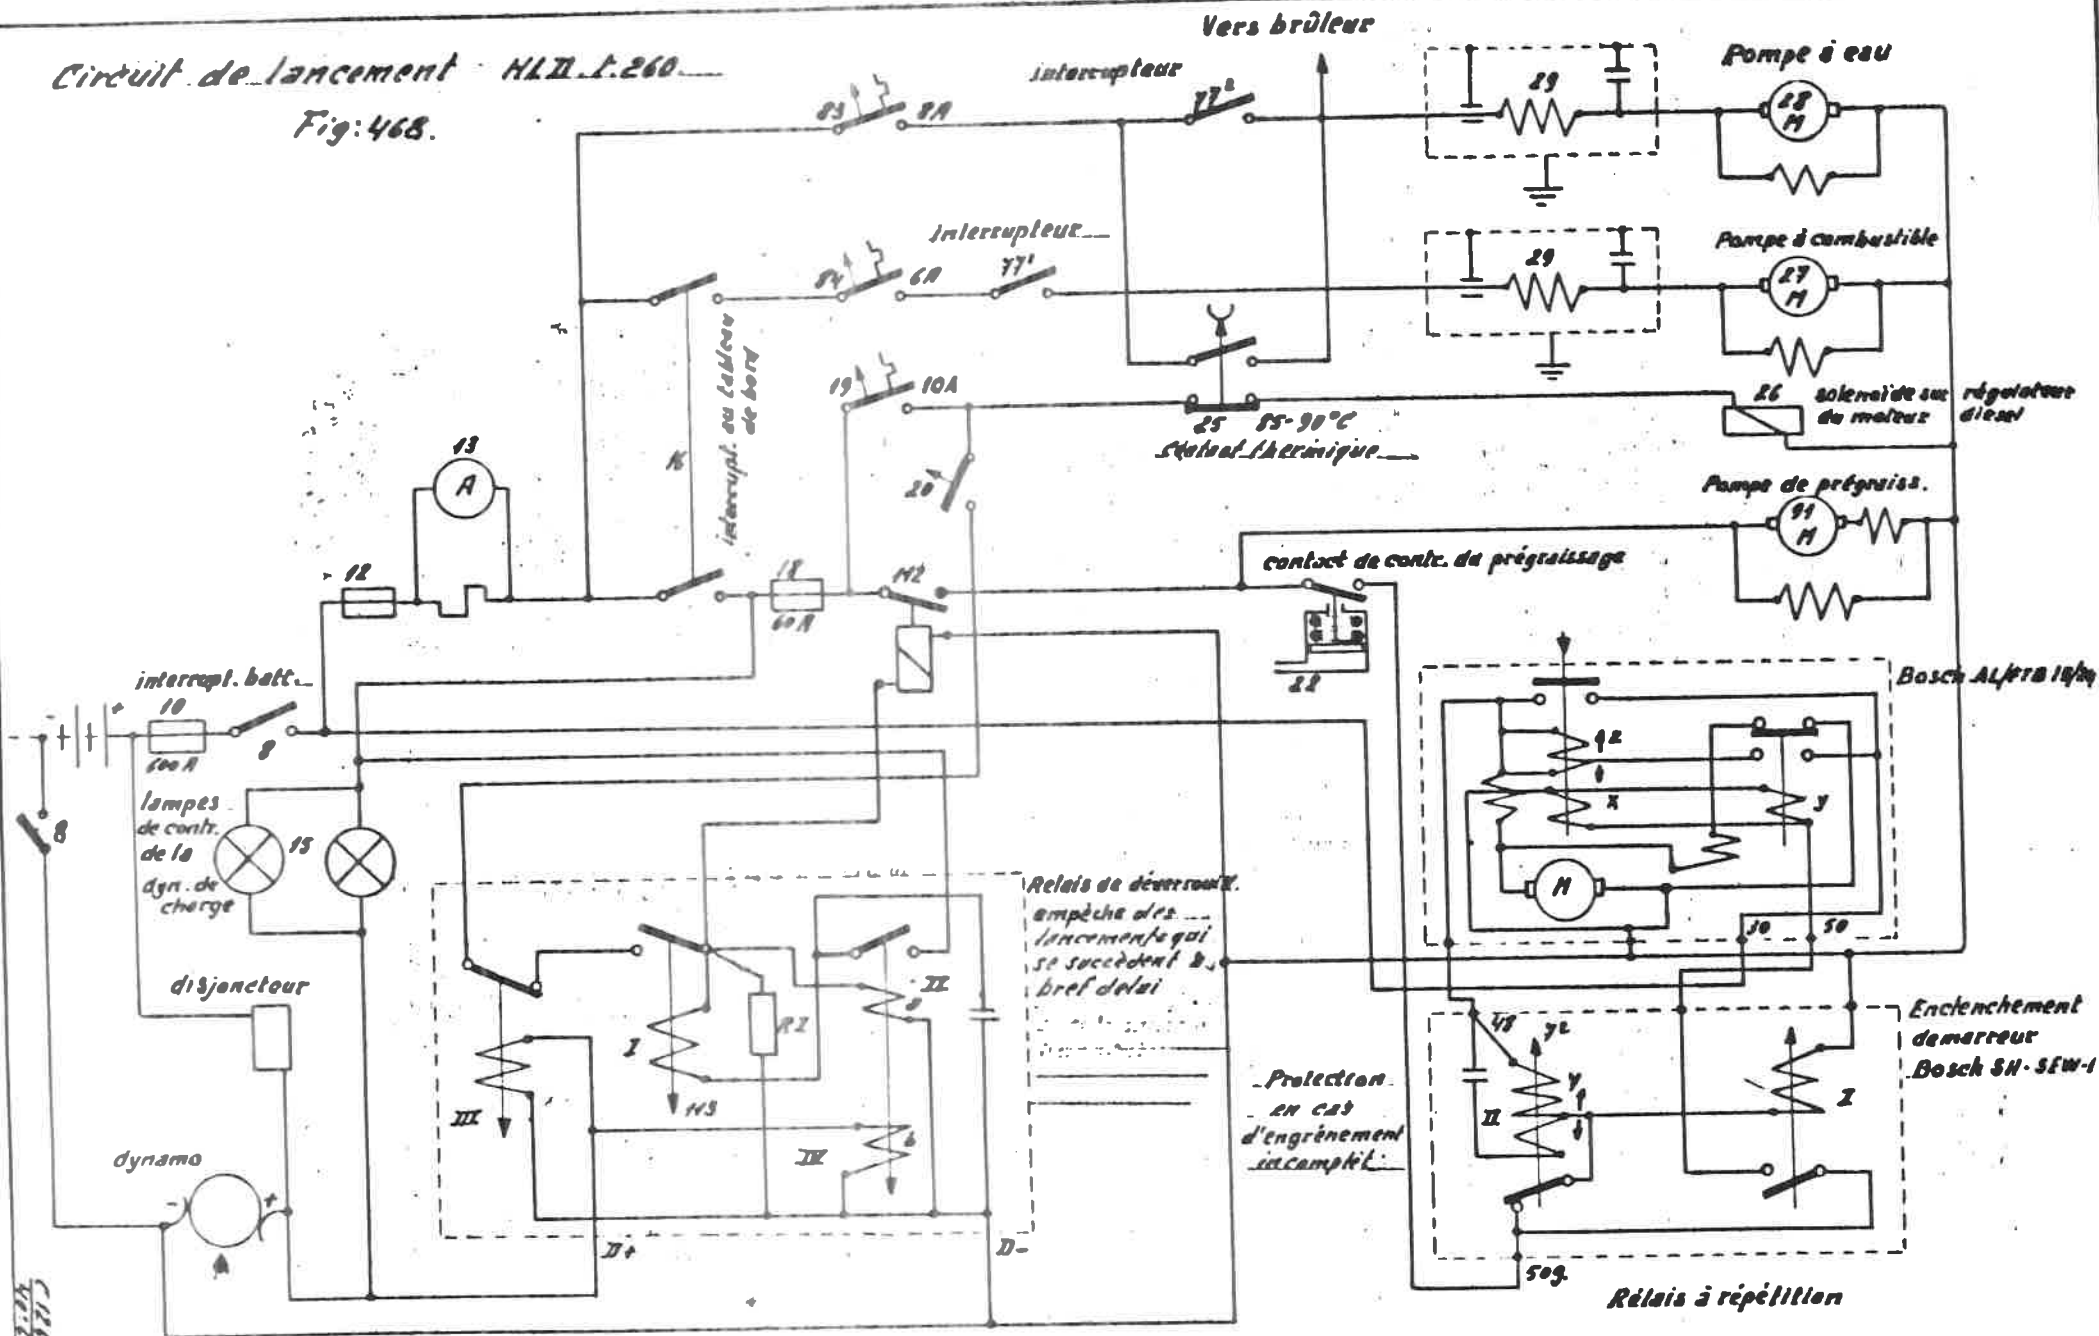 Circuit de lancement HLII.t.260.
Fig: 468.
Vers brûleur
interrupteur
83
8A
77²
29
Pompe à eau
28
M
Interrupteur
84
6A
77¹
29
Pompe à combustible
27
M
K
interrupt. au tableau
de bord
19
10A
25 85-90°C
contact thermique
26
solenoïde sur régulateur
du moteur diesel
20
13
A
12
18
60A
H2
Pompe de prégraiss.
91
M
contact de contr. du prégraissage
22
interrupt. batt.
- +
10
600A
8
8
lampes
de contr.
de la
dyn. de
charge
15
Bosch
2
x
y
M
30
50
Relais de déverrouill.
empêche des
lancements qui
se succèdent à
bref delai
III
I
H3
RI
II
a
IV
b
D+
D-
disjoncteur
dynamo
- +
Protection
en cas
d'engrènement
incomplèt
48
y²
y
II
I
50g.
Enclenchement
demarreur
Bosch SH-SEW-1
Rélais à répétition